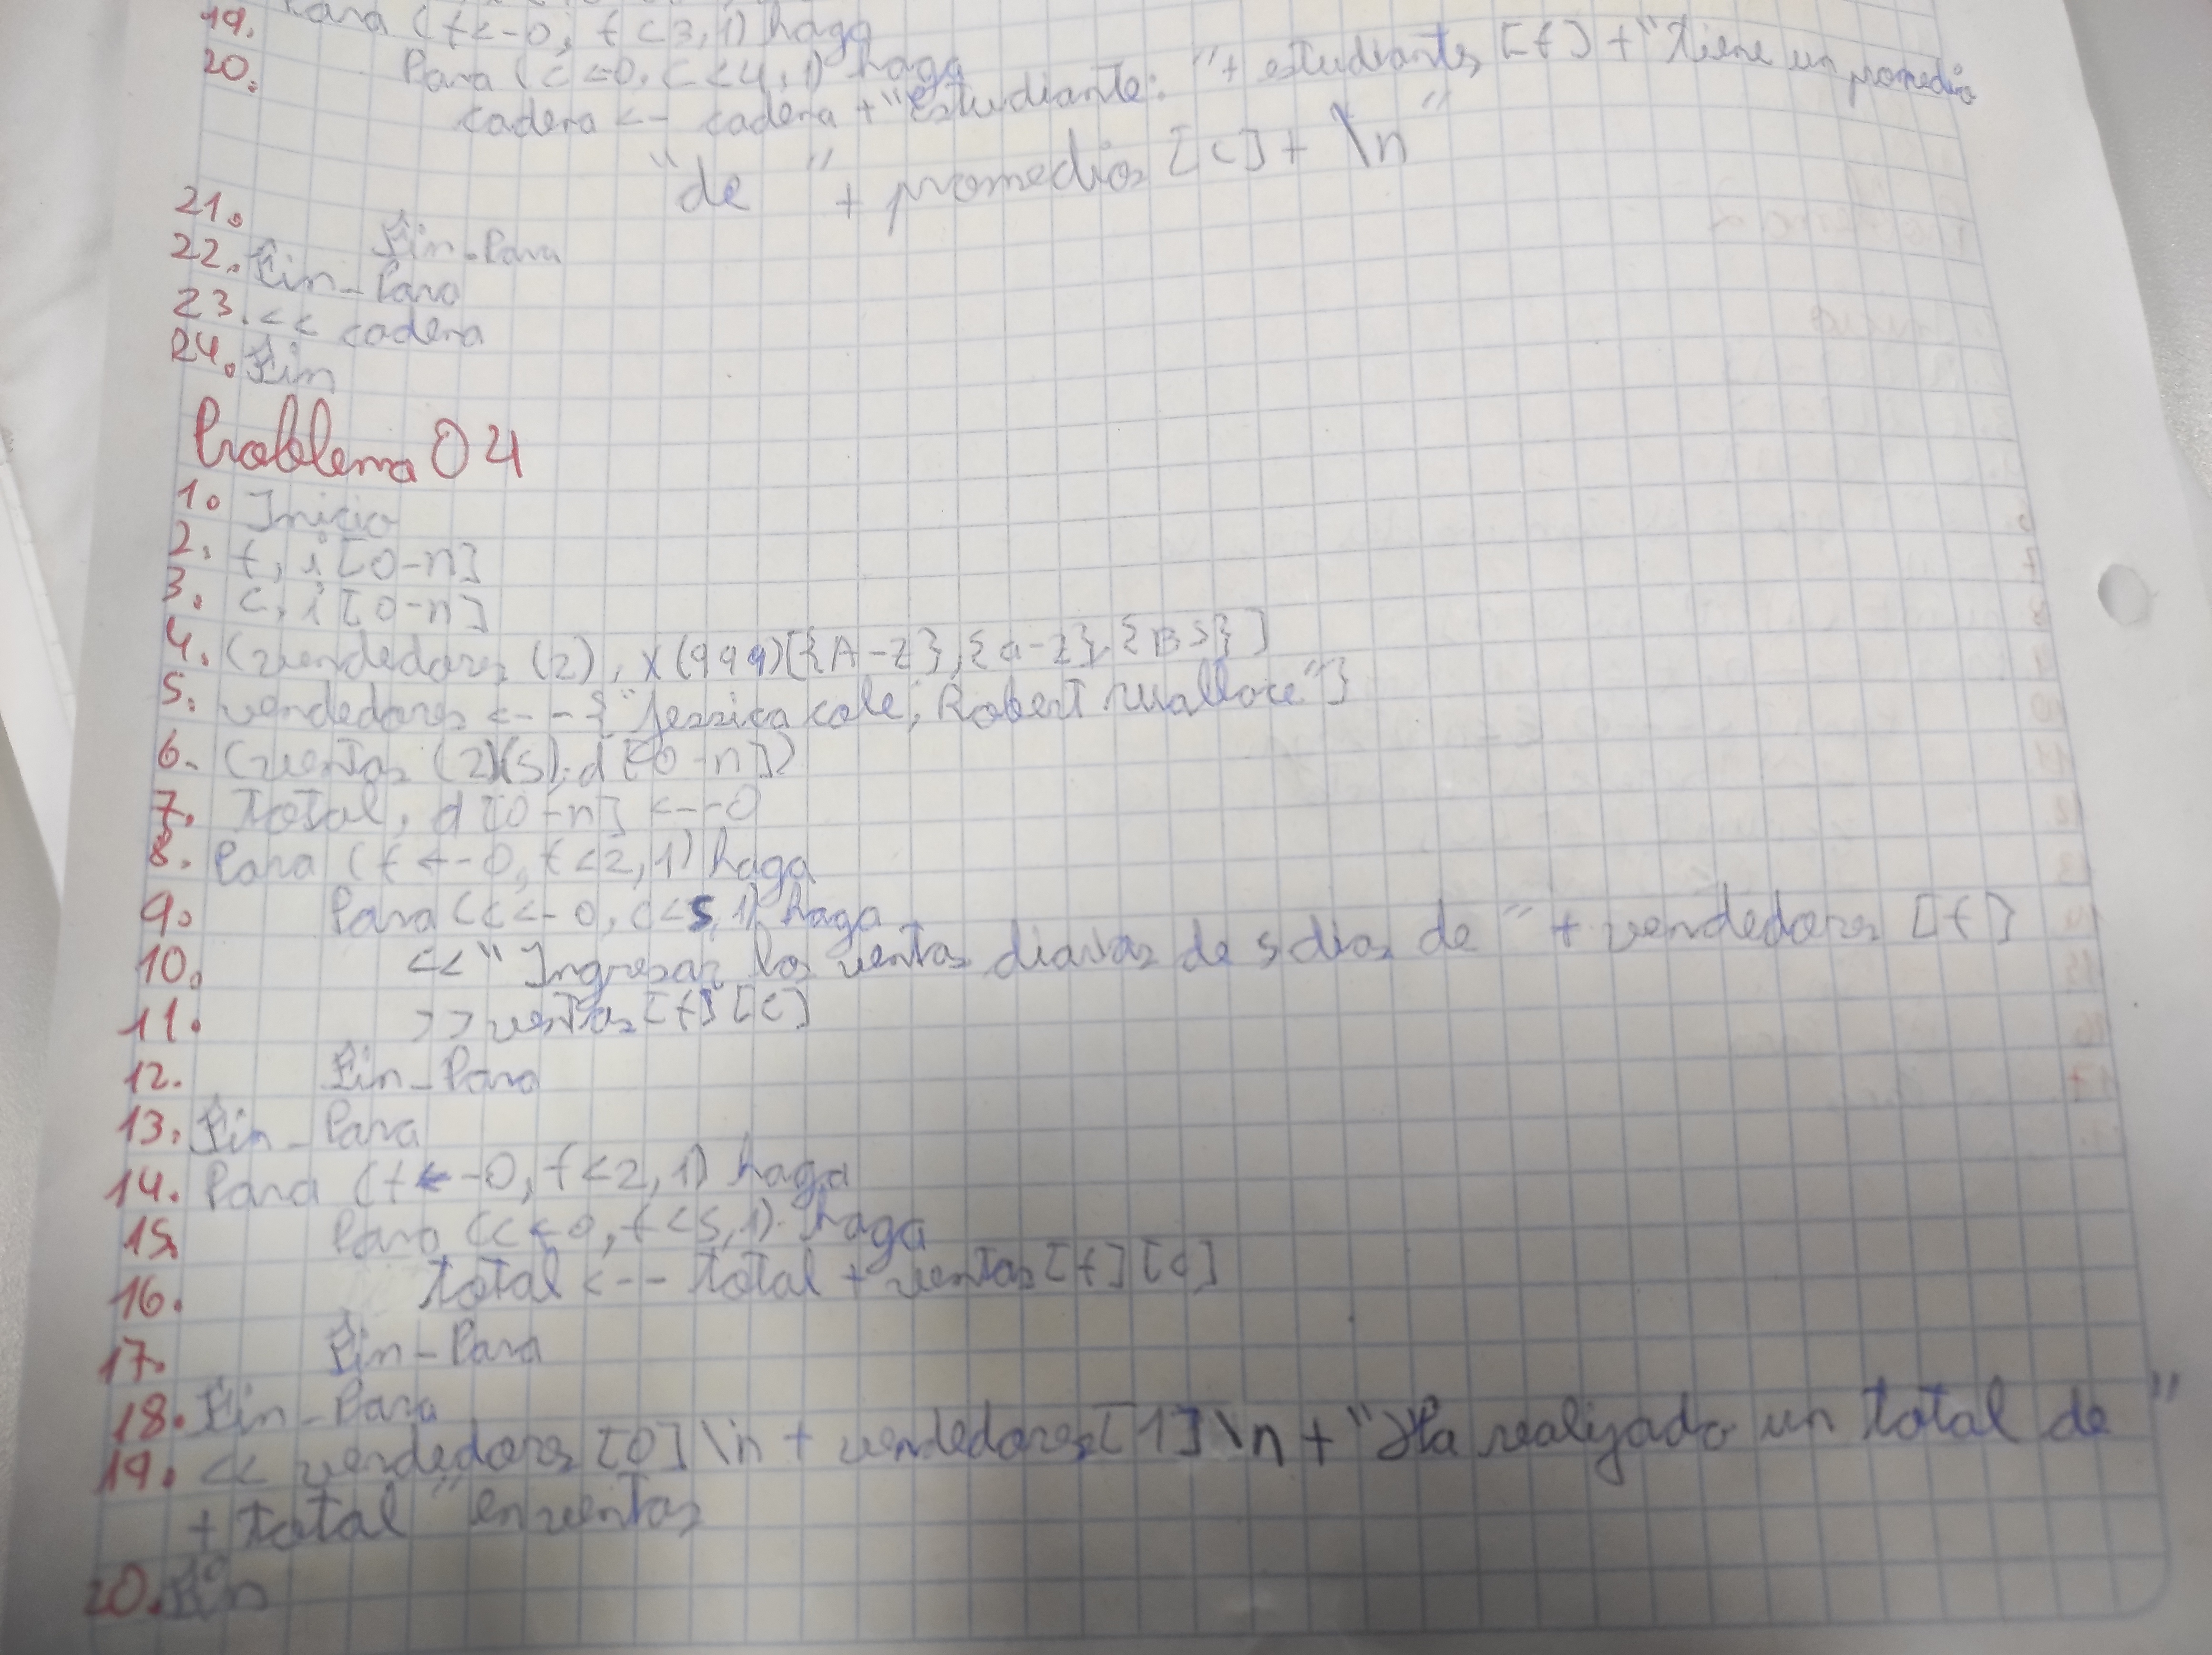 19. Para (f<-0, f<3, 1) haga
20. Para (c<-0, c<4, 1) haga
cadena <- cadena + "Estudiante: "+ estudiantes [f] + "tiene un promedio
"de " + promedios [c] + \n"
21. Fin-Para
22. Fin-Para
23. << cadena
24. Fin
Problema 04
1. Inicio
2. f, i [0-n]
3. c, i [0-n]
4. (vendedores (2), x(999)[{A-Z},{a-z},{BS}]
5. vendedores <-- {"Jessica cole, Robert wallace"}
6. (ventas (2)(5), d [0-n])
7. total, d [0-n] <--0
8. Para (f <-0, f<2, 1) haga
9. Para (c<-0, c<5, 1) haga
10. << "Ingresar las ventas diarias de 5 dias de " + vendedores [f]
11. >> ventas [f] [c]
12. Fin-Para
13. Fin-Para
14. Para (f<-0, f<2, 1) haga
15. Para (c<-0, f<5, 1) haga
16. total <-- total + ventas [f] [c]
17. Fin-Para
18. Fin-Para
19. << vendedores [0] \n + vendedores [1] \n + "Ha realizado un total de "
+ total " en ventas
20. Fin